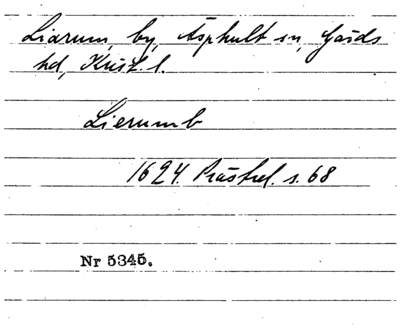 Liarum, by, Äsphult sn, Gärds
hd, Krist. l.
Lierumb
1624. Prästrel. s. 68
Nr 5345.